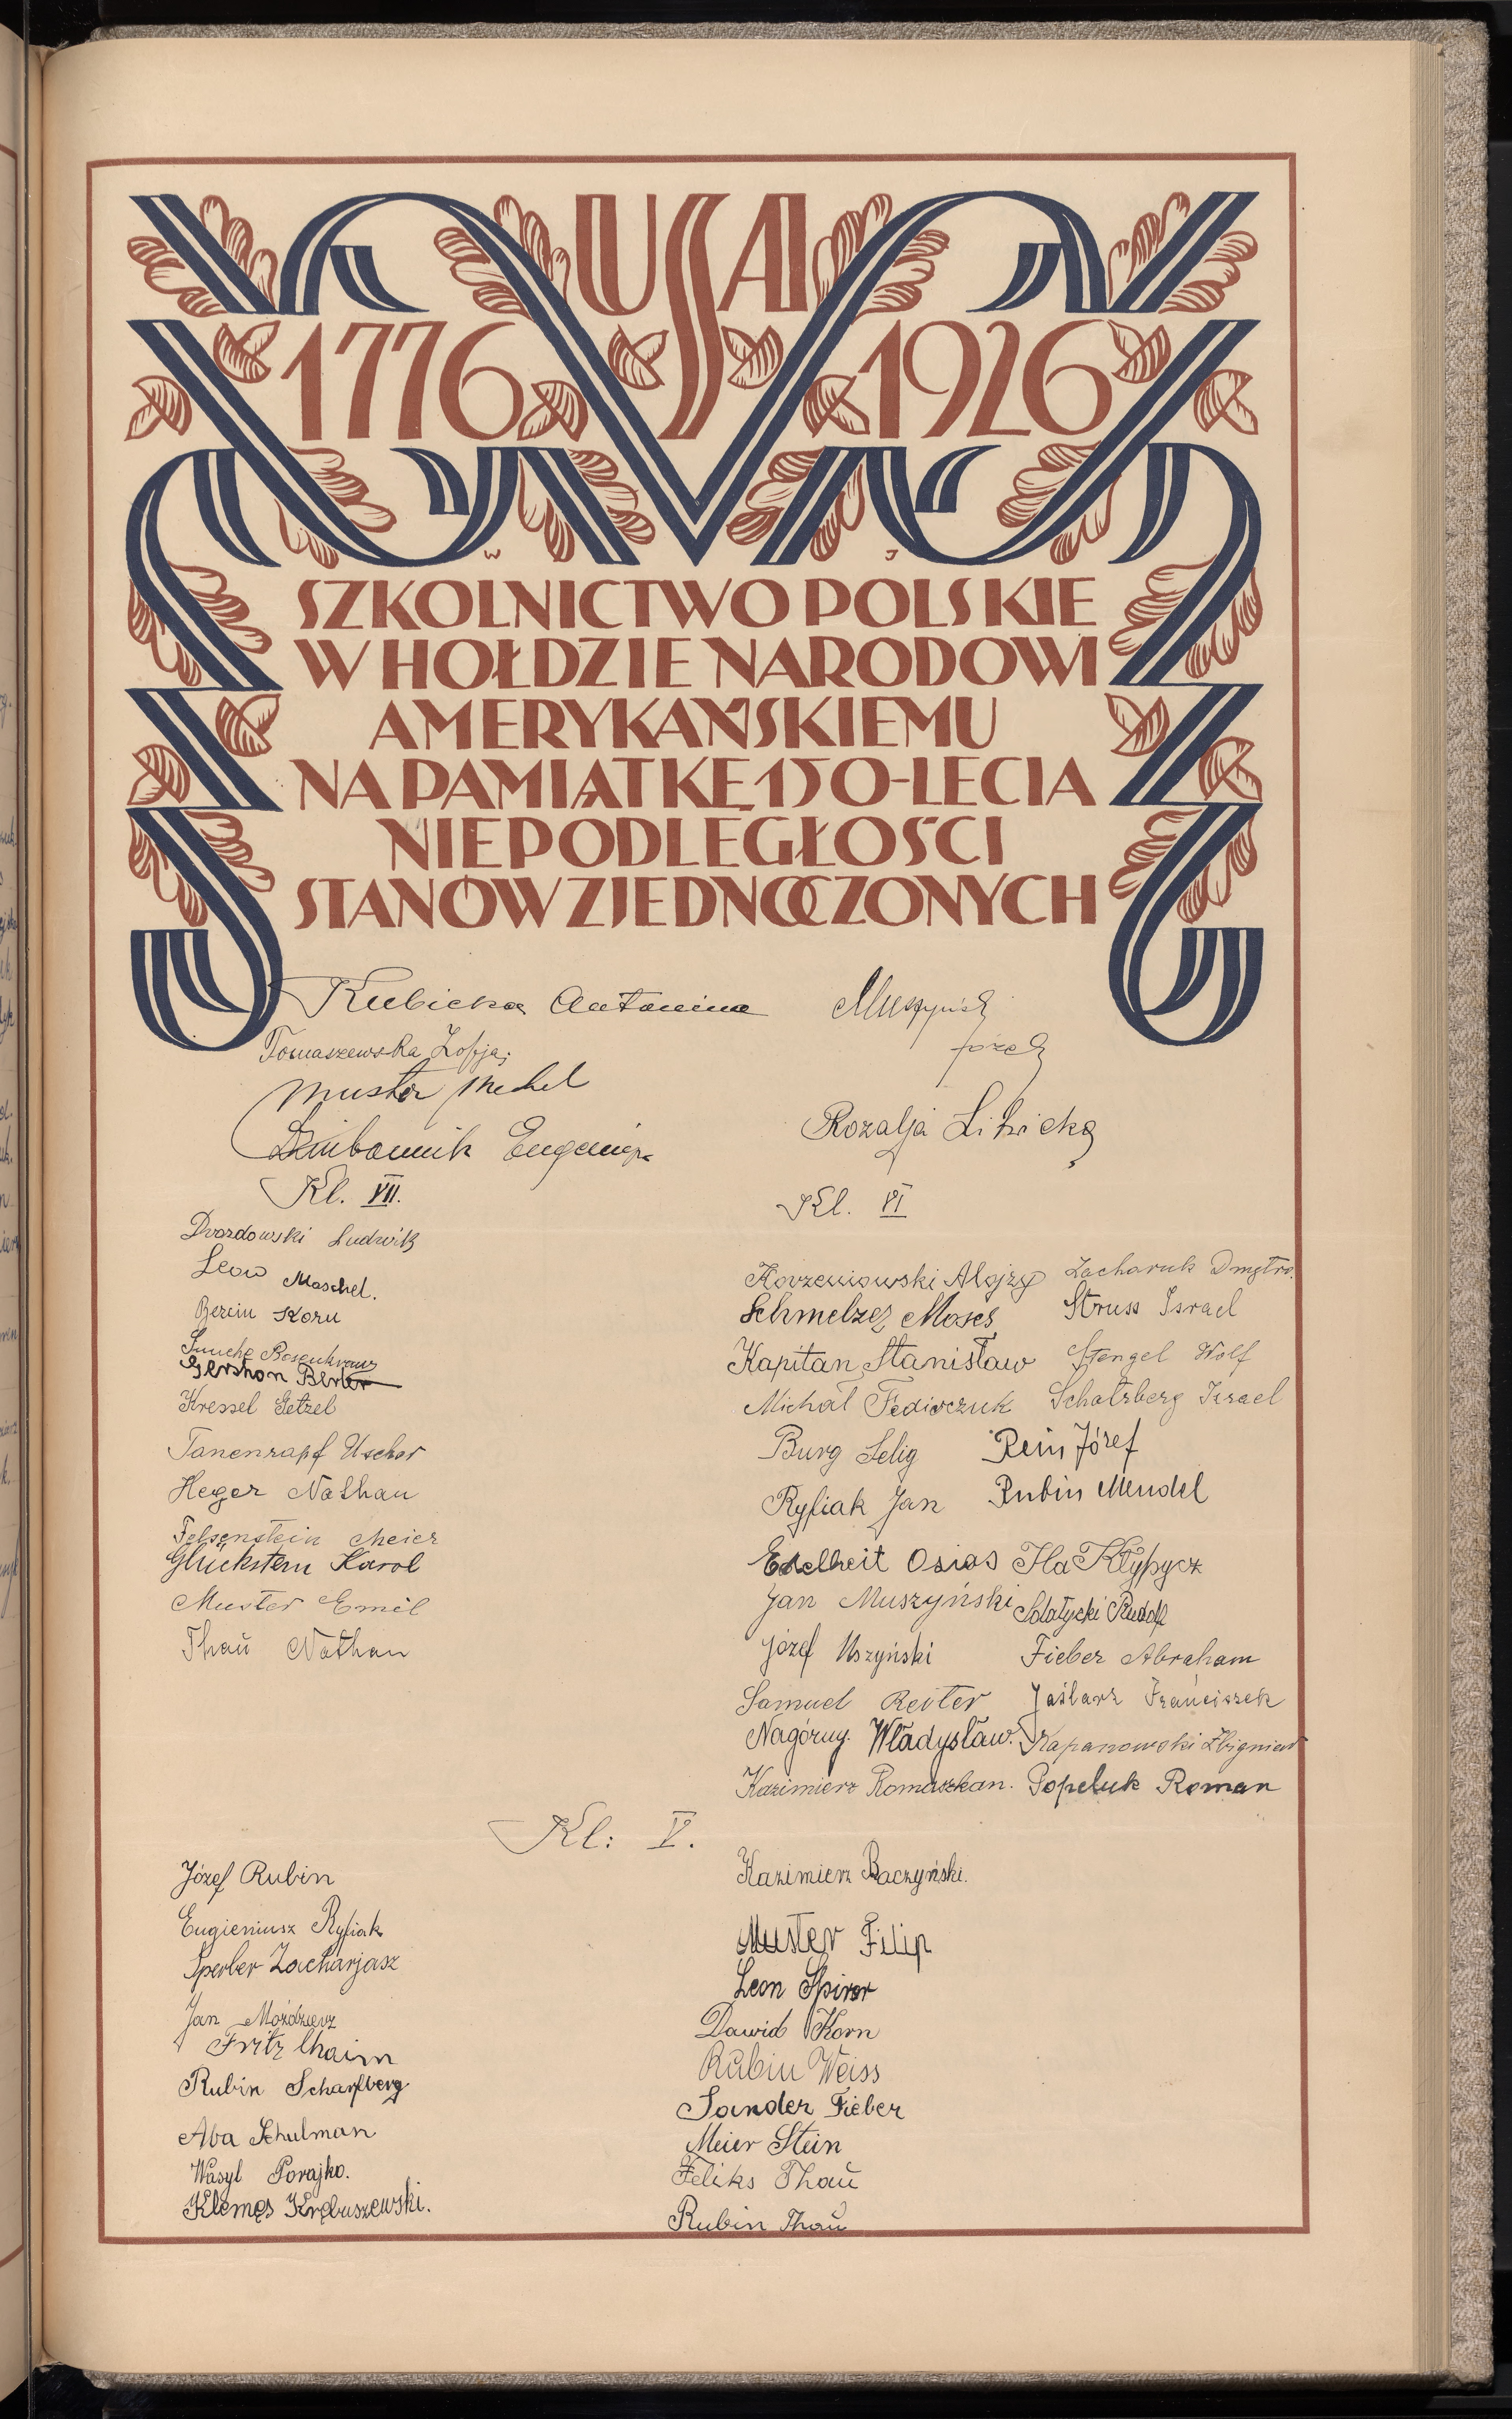 USA
1776 1926
W J
SZKOLNICTWO POLSKIE
W HOŁDZIE NARODOWI
AMERYKAŃSKIEMU
NA PAMIĄTKĘ 150-LECIA
NIEPODLEGŁOŚCI
STANÓW ZJEDNOCZONYCH
Kubicka Antonina
Tomaszewska Zofja;
Muster Mechel
Eugenja
Muszyński
Józef
Rozalja Libicka
Kl. VII.
Dvozdowski Ludwik
Leow Maschel.
Berein Korn
Rosenkranz
Gershon Berler
Kressel Getzel
Tanenzapf Uscher
Heger Nathan
Felsenstein Meier
Glückstern Karol
Muster Emil
Thau Nathan
Kl. VI
Korzeniowski Alojzy
Schmelzer Moses
Kapitan Stanisław
Michał Fediorczuk
Burg Selig
Ryfiak Jan
Edelheit Osias
Jan Muszyński
Józef Uszyński
Samuel Reiter
Nagórny. Władysław.
Kazimierz Romaszkan.
Zacharuk Dmytro.
Struss Israel
Stengel Wolf
Schatzberg Izrael
Rein Józef
Rubin Mendel
Ila Kłypycz
Sołatycki Rudolf
Fieber Abraham
Jaślarz Franciszek
Kapanowski Zbigniew
Popeluk Roman
Kl: V.
Józef Rubin
Eugieniusz Ryfiak
Sperber Zacharjasz
Jan Możdzierz
Fritz Chaim
Rubin Scharfberg
Aba Schulman
Wasyl Porajko.
Klemęs Krębuszewski.
Kazimierz Baczyński.
Muster Filip
Leon Spirer
Dawid Korn
Rubin Weiss
Sander Fieber
Meier Stein
Feliks Thau
Rubin Thau